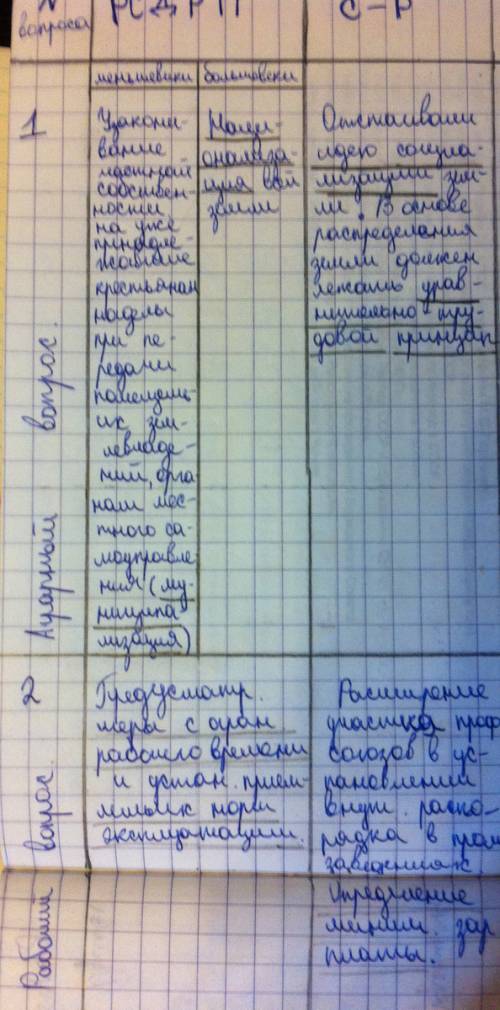 №
вопроса
РСДРП
С-Р
меньшевики
большевики
1
Аграрный вопрос.
Узакони-
вание
частной
собствен-
ности
на уже
принадле-
жавшие
крестьянам
наделы
при пе-
редачи
помещичь-
их зем-
левладе-
ний, орга
нам мес-
тного са-
моуправле
ния (му-
ниципа
лизация)
Наци-
онализа-
ция всй
земли
Отстаивали
идею социа-
лизации зем-
ли. В основе
распределения
земли должен
лежать урав-
нительно тру-
довой принцип
2
Рабочий вопрос.
Предусматр.
меры с огран
рабочего времени
и устан. прием-
лемых норм
эксплуатации.
Расширение
участка проф
союзов в ус-
тановлении
внут. распо-
рядка в пром
заведениях.
Определение
миним. зар
платы.